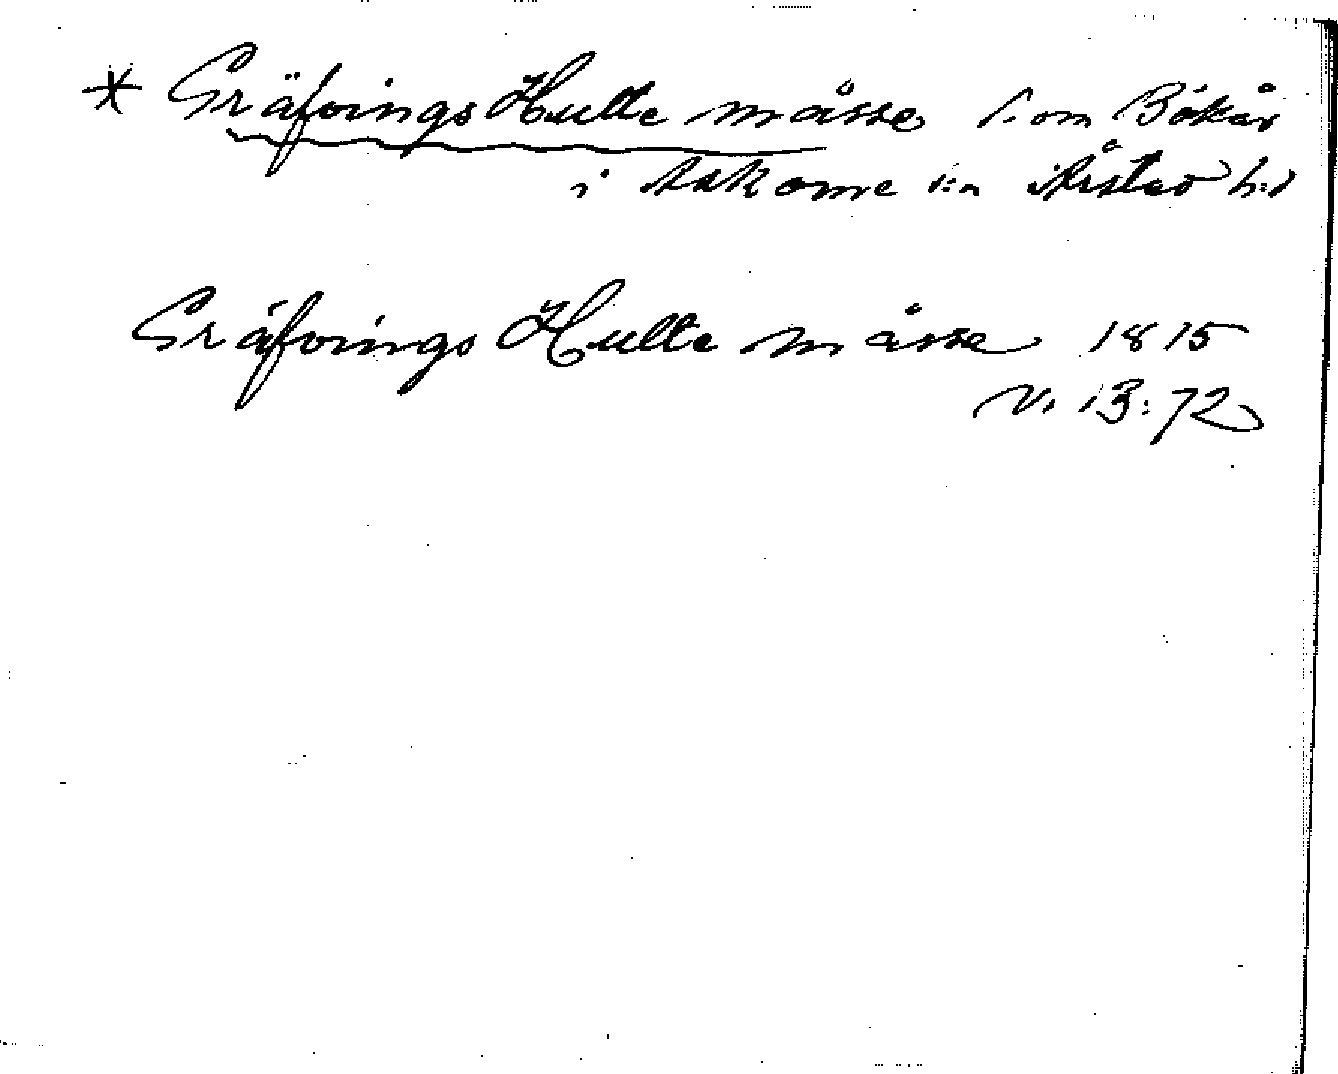 * Gräfvings Hulte måsse s. om Bökås
i Askome s:n Årstad h:d
Gräfvings Hulte måsse 1815
V. 13:72